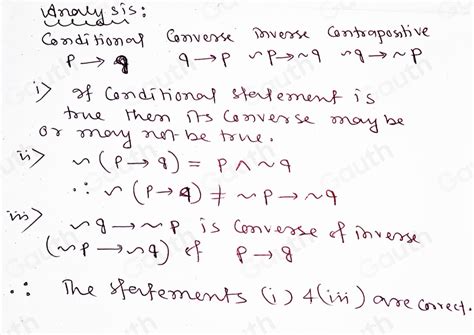 Analysis:
Conditional Converse Inverse Contrapositive
p → q q → p ~p → ~q ~q → ~p
i) If Conditional statement is
true then its Converse may be
or may not be true.
ii) ~(p → q) = p ∧ ~q
∴ ~(p → q) ≠ ~p → ~q
iii) ~q → ~p is Converse of inverse
(~p → ~q) of p → q
∴ The statements (i) & (iii) are correct.